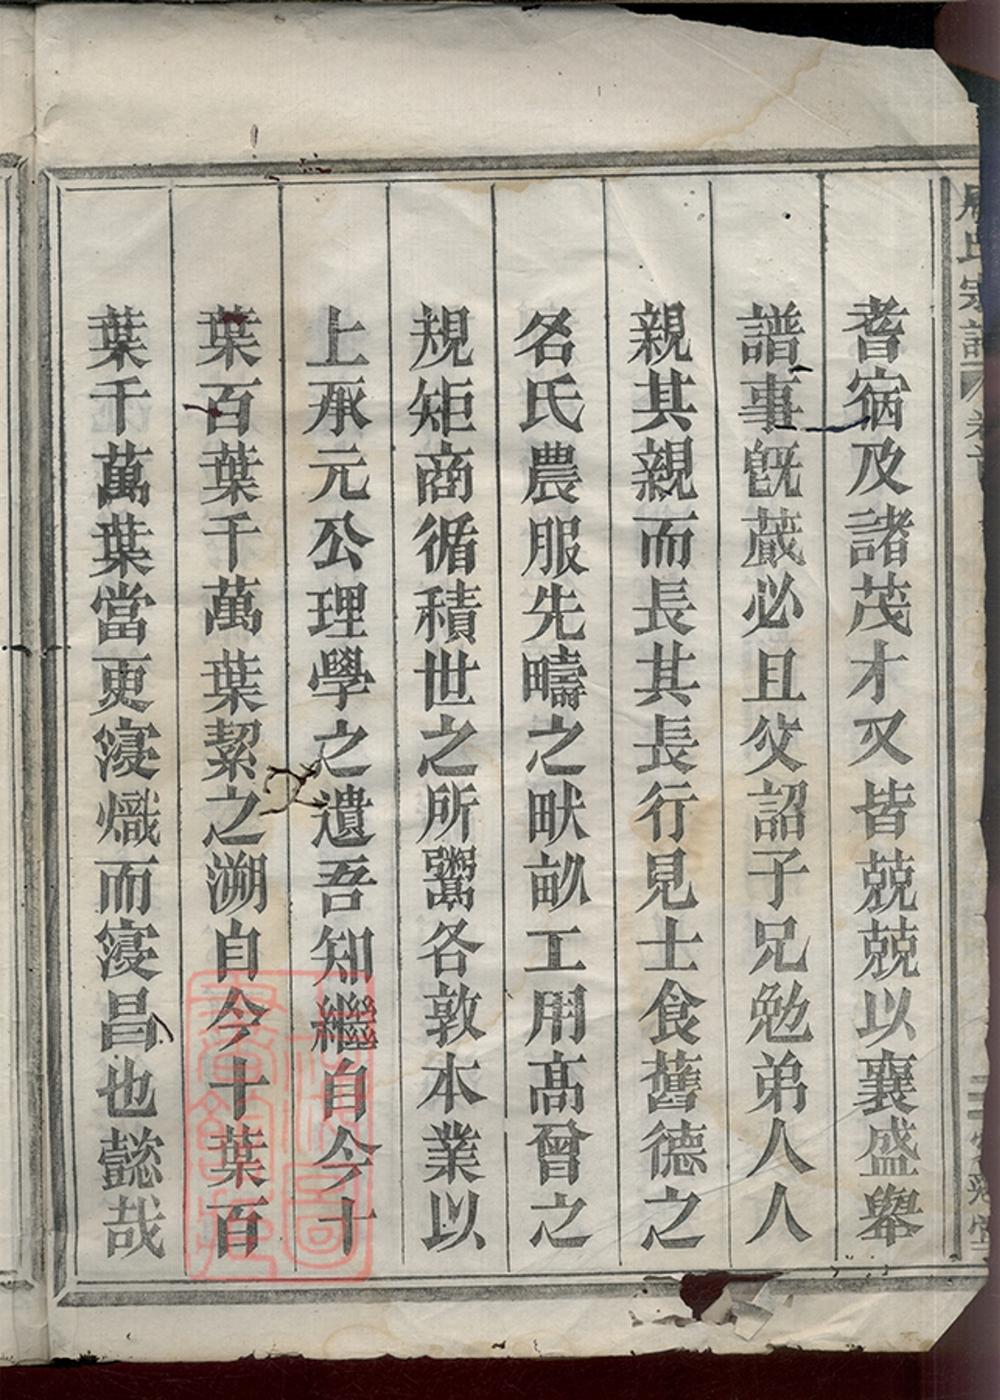 耆宿及諸茂才又皆兢兢以襄盛舉
譜事旣蕆必且父詔子兄勉弟人人
親其親而長其長行見士食舊德之
名氏農服先疇之畎畝工用高曾之
規矩商循積世之所鬻各敦本業以
上承元公理學之遺吾知繼自今十
葉百葉千萬葉絜之溯自今十葉百
葉千萬葉當更寖熾而寖昌也懿哉
氏宗譜